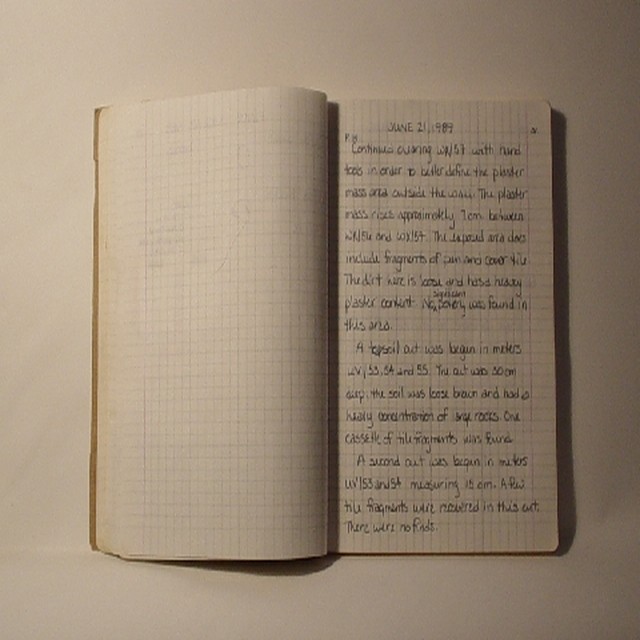 JUNE 21, 1989
Continued clearing with hand
tools in order to better define the plaster
mass area outside the wall. The plaster
mass rises approximately 7cm between
and The exposed area does
include fragments of pan and cover tile.
The dirt here is loose and has a heavy
plaster content. No significant pottery was found in
this area.
A topsoil cut was begun in meters
53, 54 and 55. The cut was 30cm
deep; the soil was loose brown and had a
heavy concentration of large rocks. One
cassette of tile fragments was found.
A second cut was begun in meters
53 and 54 measuring 15 cm. A few
tile fragments were recovered in this cut.
There were no finds.